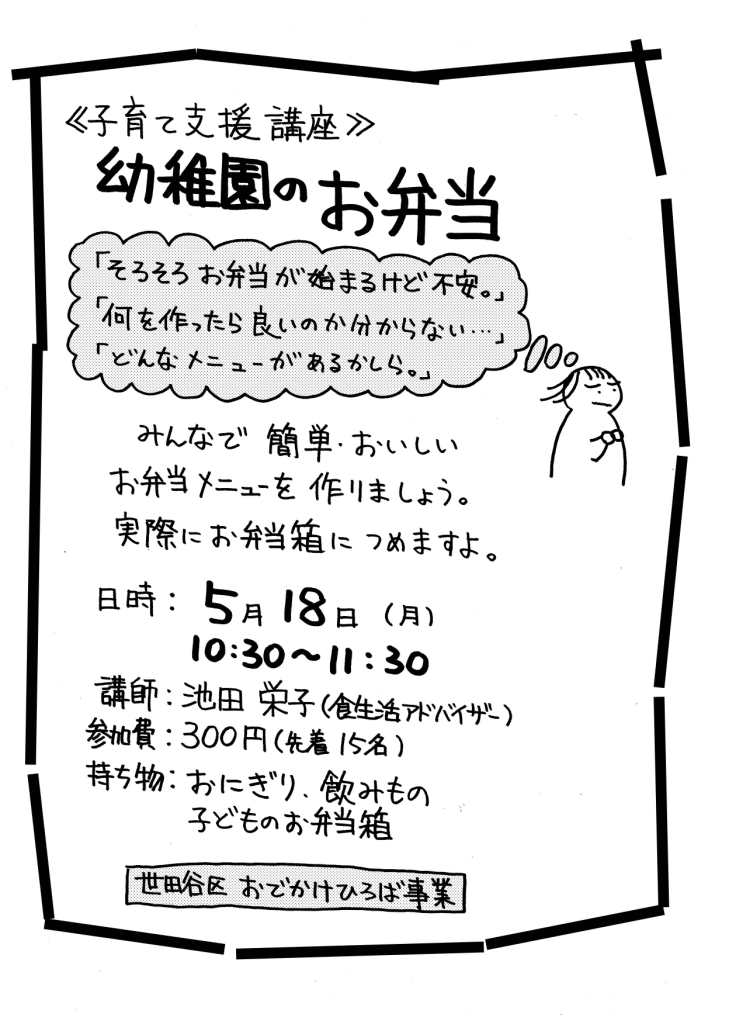 ≪子育て支援 講座≫
幼稚園のお弁当
「そろそろ お弁当が始まるけど 不安。」
「何を作ったら 良いのか分からない…」
「どんなメニューがあるかしら。」
みんなで 簡単・おいしい
お弁当メニューを 作りましょう。
実際に お弁当箱に つめますよ。
日時： 5月 18日 （月）
10:30〜11:30
講師：池田 栄子（食生活アドバイザー）
参加費：300円（先着 15名）
持ち物：おにぎり、飲みもの
子どものお弁当箱
世田谷区 おでかけひろば事業